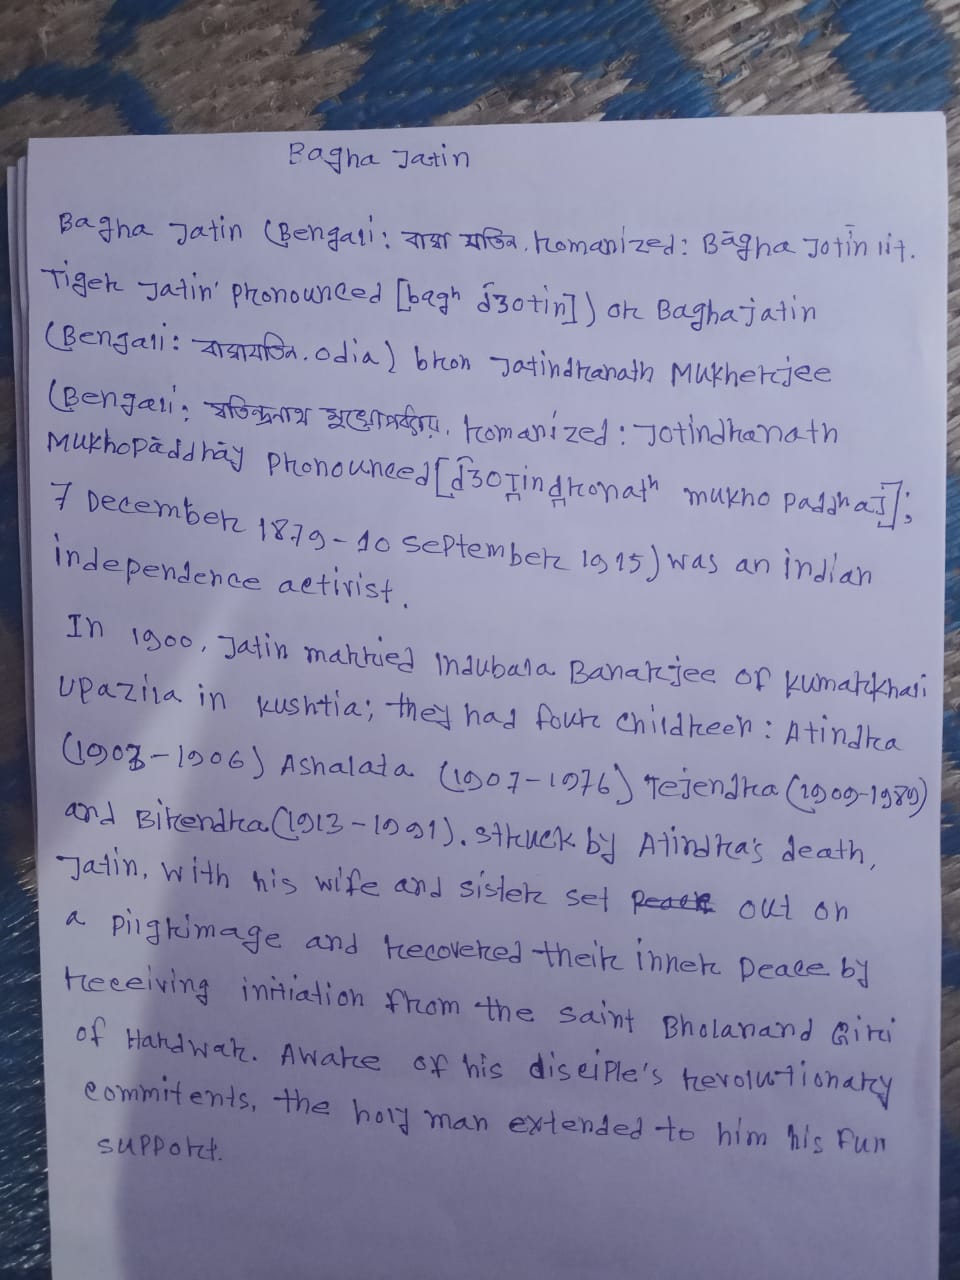 Bagha Jatin
Bagha Jatin (Bengali: বাঘা যতিন. romanized: Bāgha Jotin lit.
Tiger Jatin' pronounced [bagʱ d͡ʒotin]) or Baghajatin
(Bengali: বাঘাযতিন. odia) bron Jatindranath Mukherjee
(Bengali: যতিন্দ্রনাথ romanized: Jotindranath
Mukhopāddhāy pronounced [d͡ʒot̪ind̪ronatʰ mukho paddhaj];
7 December 1879-10 september 1915) was an indian
independence activist.
In 1900, Jatin married Indubala Banarjee of kumarkhali
upazila in kushtia; they had four childreen: Atindra
(1903-1906) Ashalata (1907-1976) Tejendra (1909-1989)
and Birendra (1913-1991). struck by Atindra's death,
Jatin, with his wife and sister set out on
a pilgrimage and recovered their inner peace by
receiving initiation from the saint Bholanand Giri
of Hardwar. Aware of his disciple's revolutionary
commitents, the holy man extended to him his full
support.